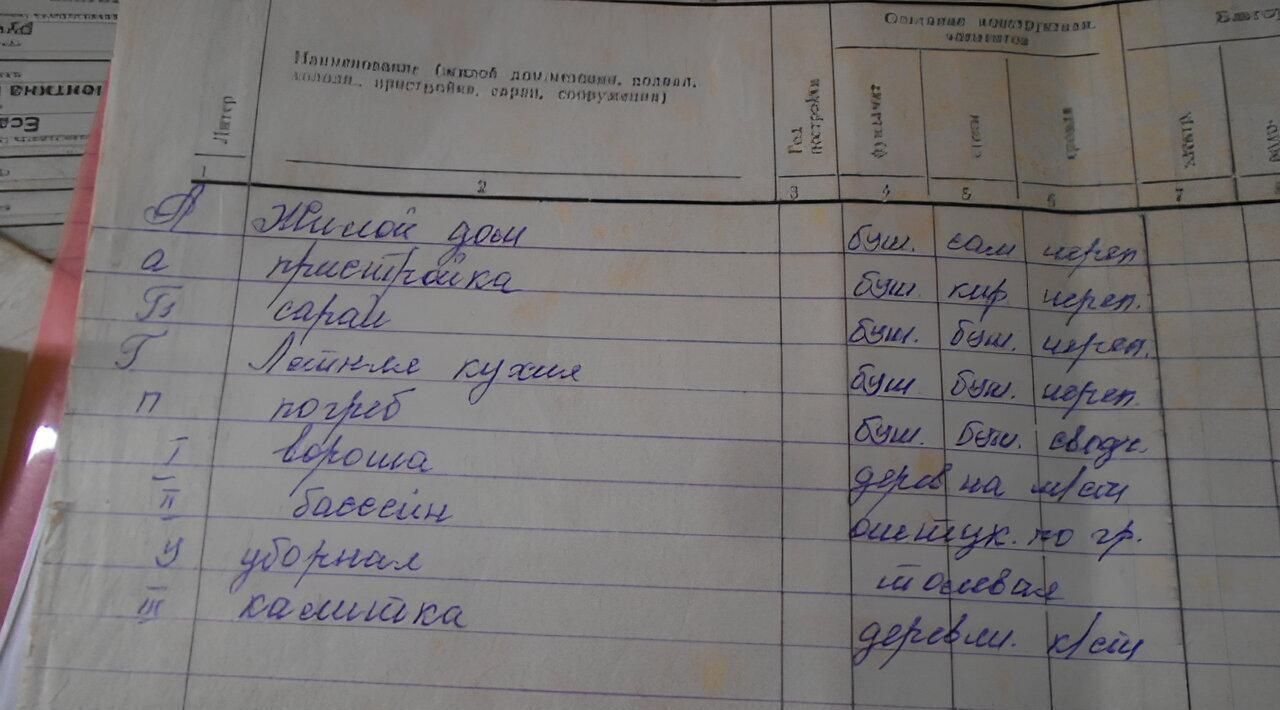 Литер
Наименование (жилой дом, мезонин, подвал,
холодн., пристройка, сарай, сооружения)
Год постройки
Описание конструктивн. элементов
фундамент
стены
кровля
электр.
1 2 3 4 5 6 7
А Жилой дом буш. сам череп
а пристройка буш. кир. череп.
сарай буш. буш. череп.
Г Летняя кухня буш буш. череп.
п погреб буш. буш. сводч.
I вороша дерев на м/ст
II бассеин оштук. по гр.
У уборная толевая
III калитка деревян. к/ст